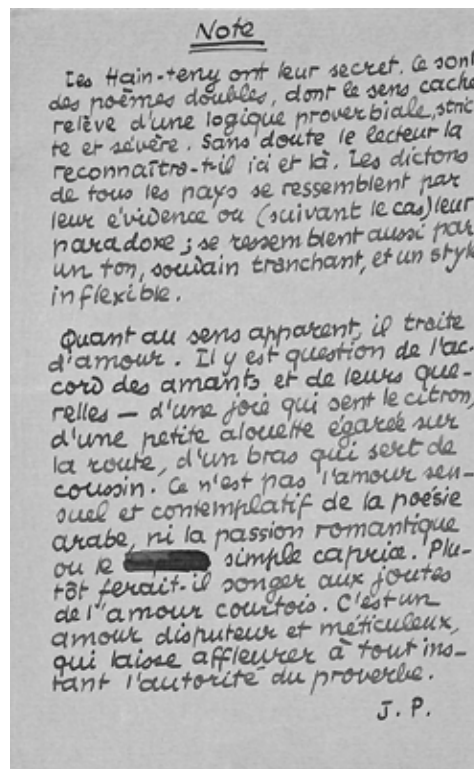 Note
Les Hain-teny ont leur secret. Ce sont
des poèmes doubles, dont le sens caché
relève d'une logique proverbiale, stric
te et sévère. Sans doute le lecteur la
reconnaîtra-t-il ici et là. Les dictons
de tous les pays se ressemblent par
leur évidence ou (suivant le cas) leur
paradoxe ; se ressemblent aussi par
un ton, soudain tranchant, et un style
inflexible.
Quant au sens apparent, il traite
d'amour. Il y est question de l'ac-
cord des amants et de leurs que-
relles — d'une joie qui sent le citron,
d'une petite alouette égarée sur
la route, d'un bras qui sert de
coussin. Ce n'est pas l'amour sen-
suel et contemplatif de la poésie
arabe, ni la passion romantique
ou le simple caprice. Plu-
tôt ferait-il songer aux joutes
de l'amour courtois. C'est un
amour disputeur et méticuleux,
qui laisse affleurer à tout ins-
tant l'autorité du proverbe.
J. P.